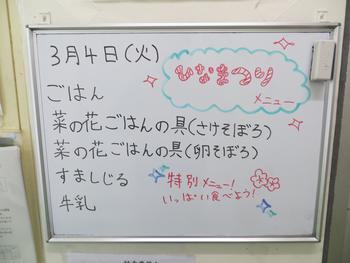 3月4日(火)
ひなまつり
メニュー
ごはん
菜の花ごはんの具(さけそぼろ)
菜の花ごはんの具(卵そぼろ)
すましじる
牛乳
特別メニュー!
いっぱい食べよう!